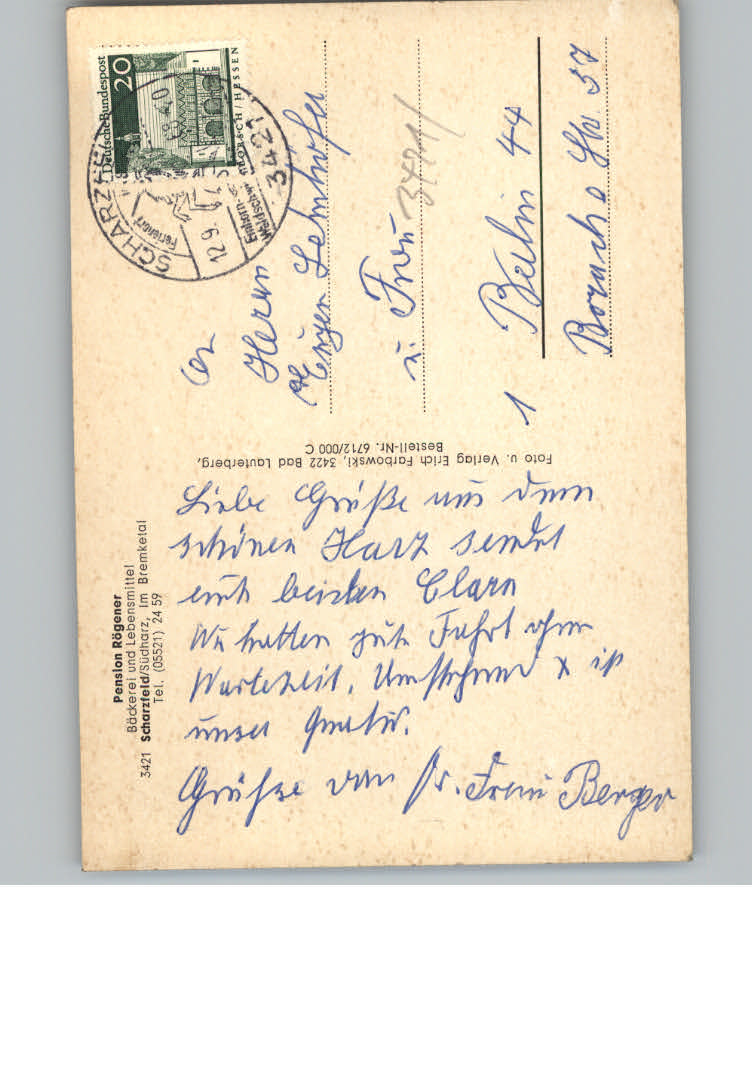 Pension Rögener
Bäckerei und Lebensmittel
3421 Scharzfeld/Südharz, Im Bremketal
Tel. (05521) 24 59
Liebe Grüße aus dem
schönen Harz sendet
euch beiden Clara
Wir hatten gute Fahrt ohne
Wartezeit. Umstehend x ist
unser Quartir.
Grüße von Fr. Berger
Foto u. Verlag Erich Farbowski, 3422 Bad Lauterberg,
Bestell-Nr. 6712/000 C
Deutsche Bundespost
20
LORSCH/HESSEN
SCHARZFE
3421
Ferienort
Einhorn-
12.9.
An
Herrn
Eugen Lehnhofer
u. Frau
3421/
1 Berlin 44
Str. 57